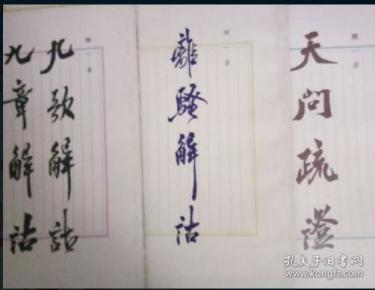 天問疏證
離騷解詁
九歌解詁
九章解詁
孔夫子旧书网